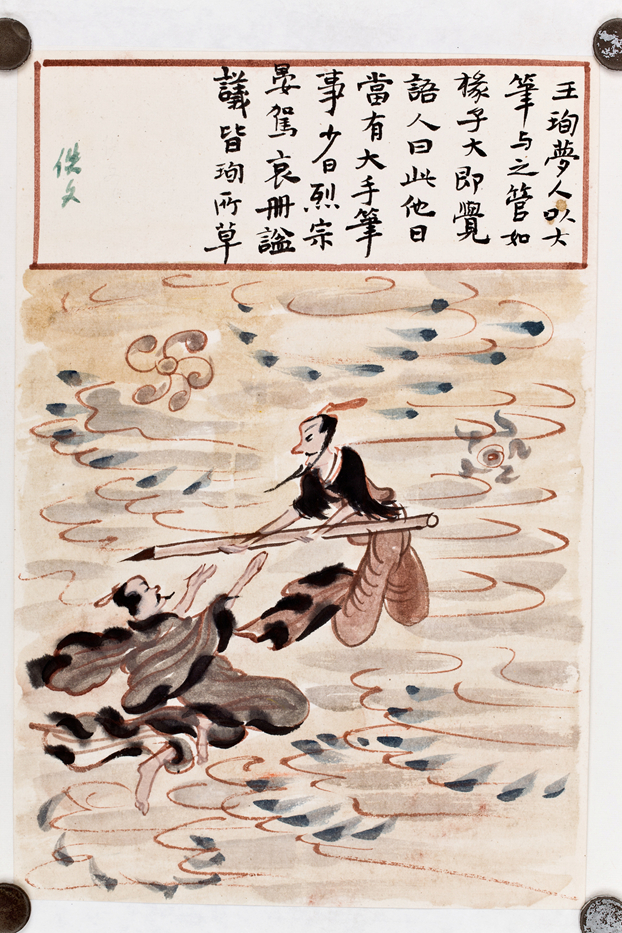 王珣夢人以大
筆与之管如
椽子大即覺
語人曰此他日
當有大手筆
事少日烈宗
晏駕哀冊謚
議皆珣所草
佚文